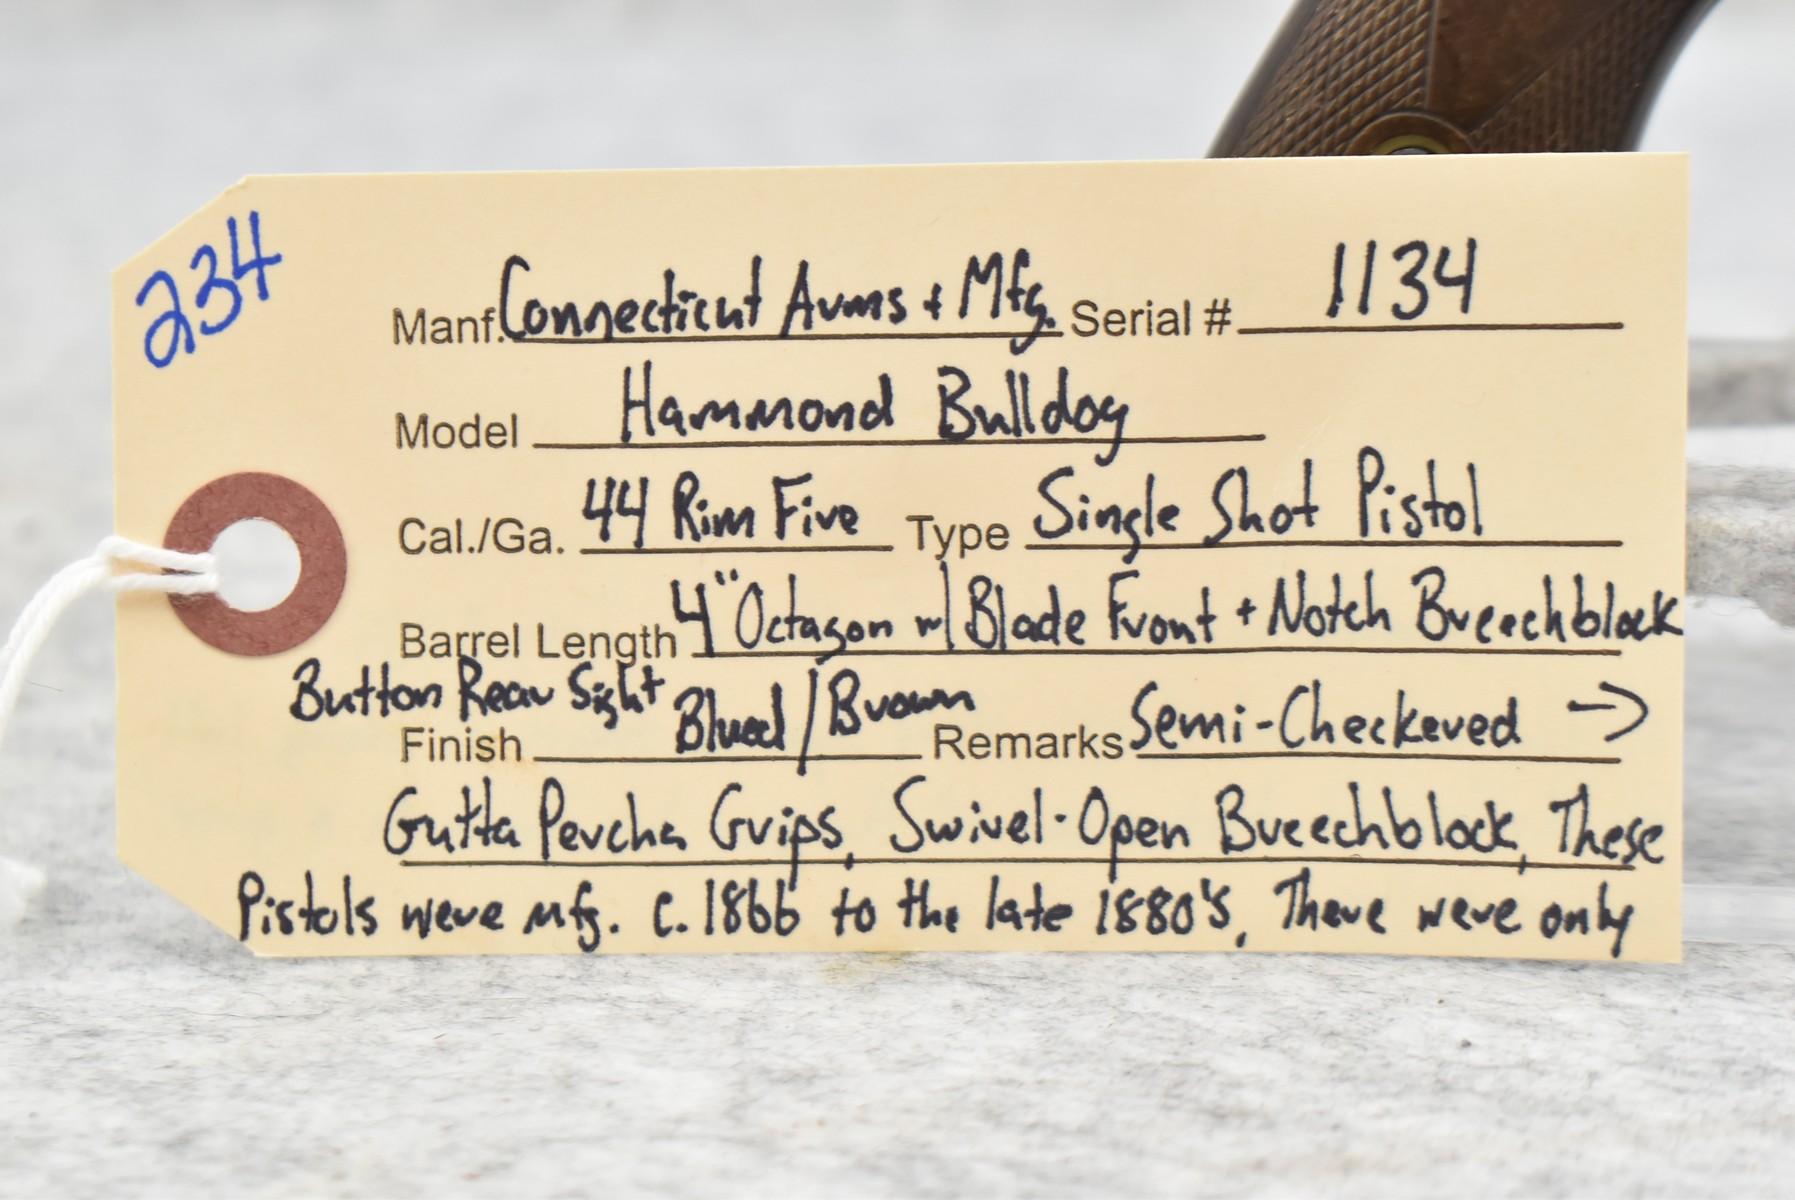 234
Manf. Connecticut Arms + Mfg. Serial # 1134
Model Hammond Bulldog
Cal./Ga. 44 Rim Fire Type Single Shot Pistol
Barrel Length 4" Octagon w/ Blade Front + Notch Breechblock
Button Rear Sight
Finish Blued/Brown Remarks Semi-Checkered →
Gutta Percha Grips, Swivel-Open Breechblock, These
Pistols were mfg. c. 1866 to the late 1880's, There were only